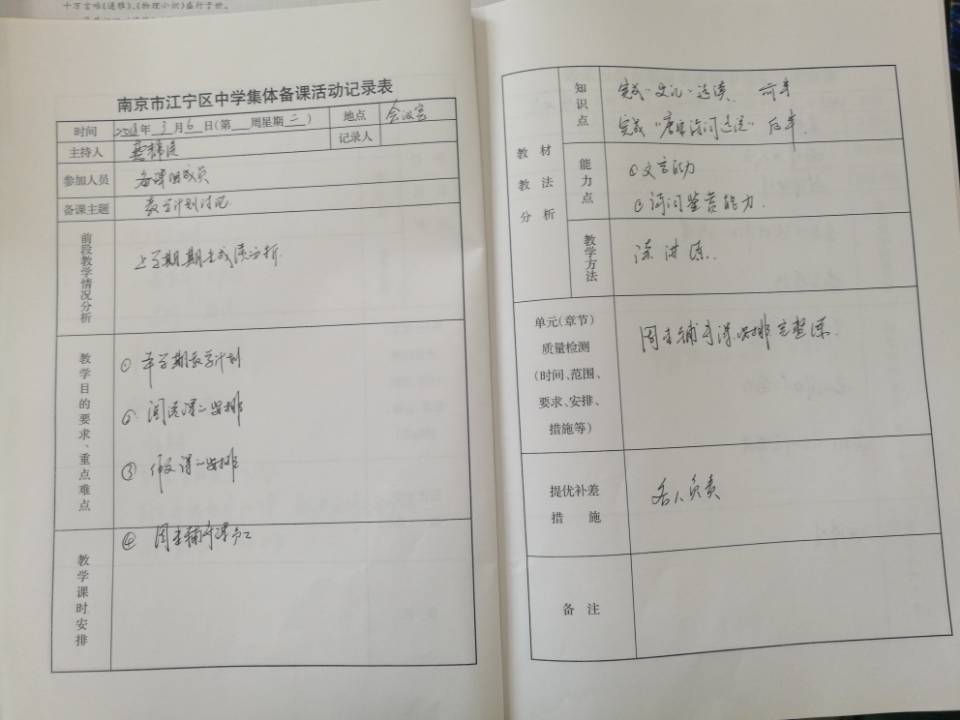 十万言咯《通雅》、《物理小识》盛行于世。
南京市江宁区中学集体备课活动记录表
时间 2018年3月6日(第 周星期二) 地点 会议室
主持人 记录人
参加人员 备课组成员
备课主题 教学计划讨论
前段教学情况分析 上学期期末成绩分析
教学目的要求、重点难点
① 本学期教学计划
② 阅读课=安排
③ 作文课=安排
④ 周末辅导课分工
教学课时安排
教材教法分析
知识点
完成《文化·选读》
完成"唐诗宋词选读"
能力点
①文言能力
②诗词鉴赏能力.
教学方法 练 讲 练.
单元(章节)
质量检测
(时间、范围、
要求、安排、
措施等)
周末辅导课,安排完整练.
提优补差
措施 各人负责
备注